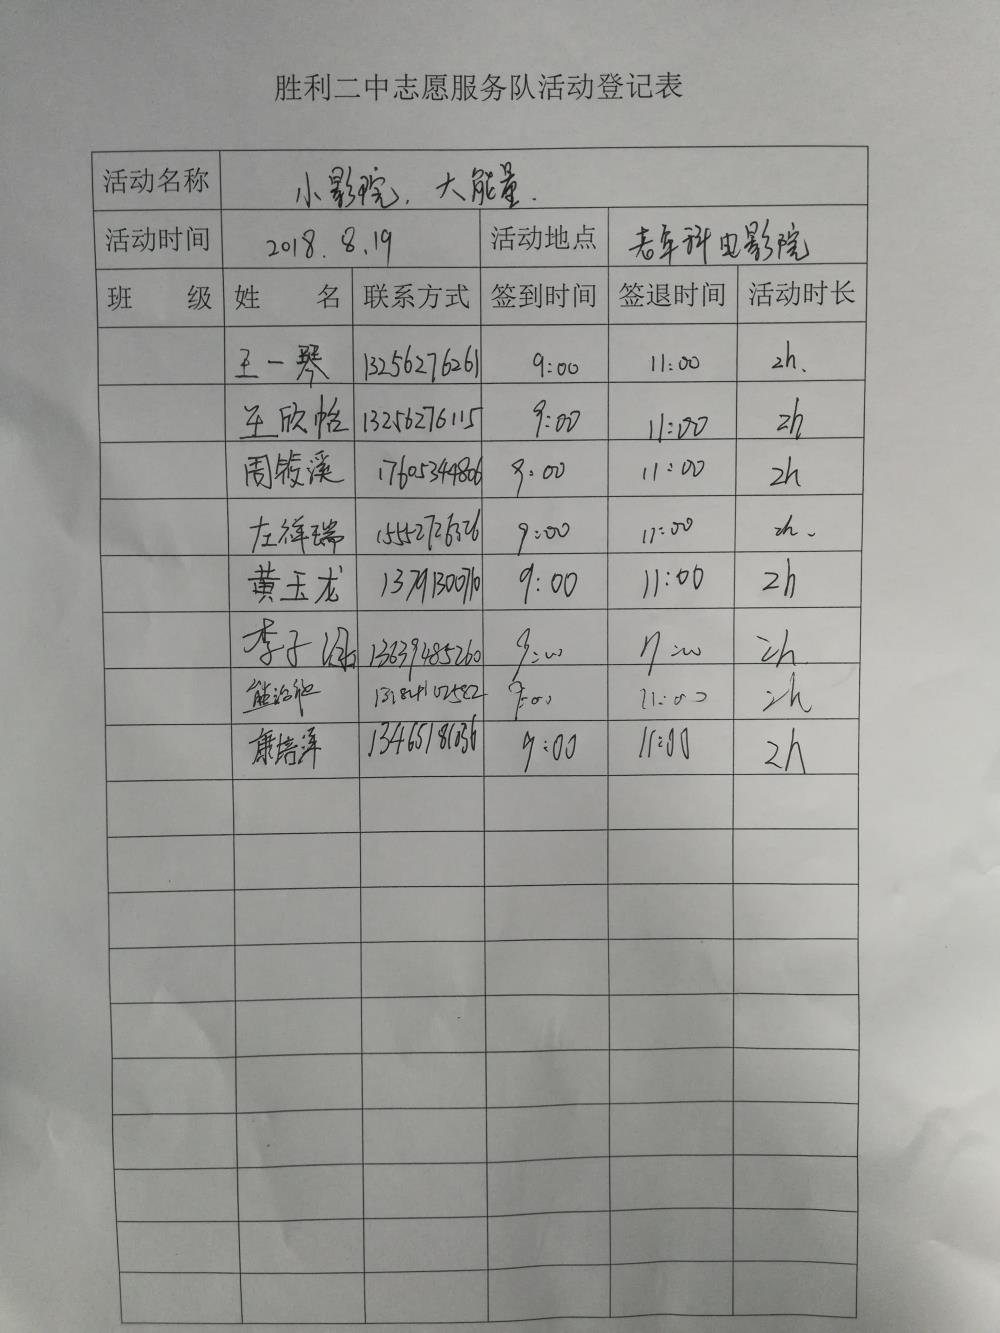 胜利二中志愿服务队活动登记表
活动名称 小影院，大能量.
活动时间 2018.8.19 活动地点 老年科电影院
班 级 姓 名 联系方式 签到时间 签退时间 活动时长
王一琴 13256276261 9:00 11:00 2h.
王欣恬 13256276115 9:00 11:00 2h
周筱溪 17605344806 9:00 11:00 2h
左祥瑞 15552726326 9:00 11:00 2h.
黄玉龙 9:00 11:00 2h
李子 13639485260 9:00 11:00 2h
9:00 11:00 2h
康培泽 9:00 11:00 2h